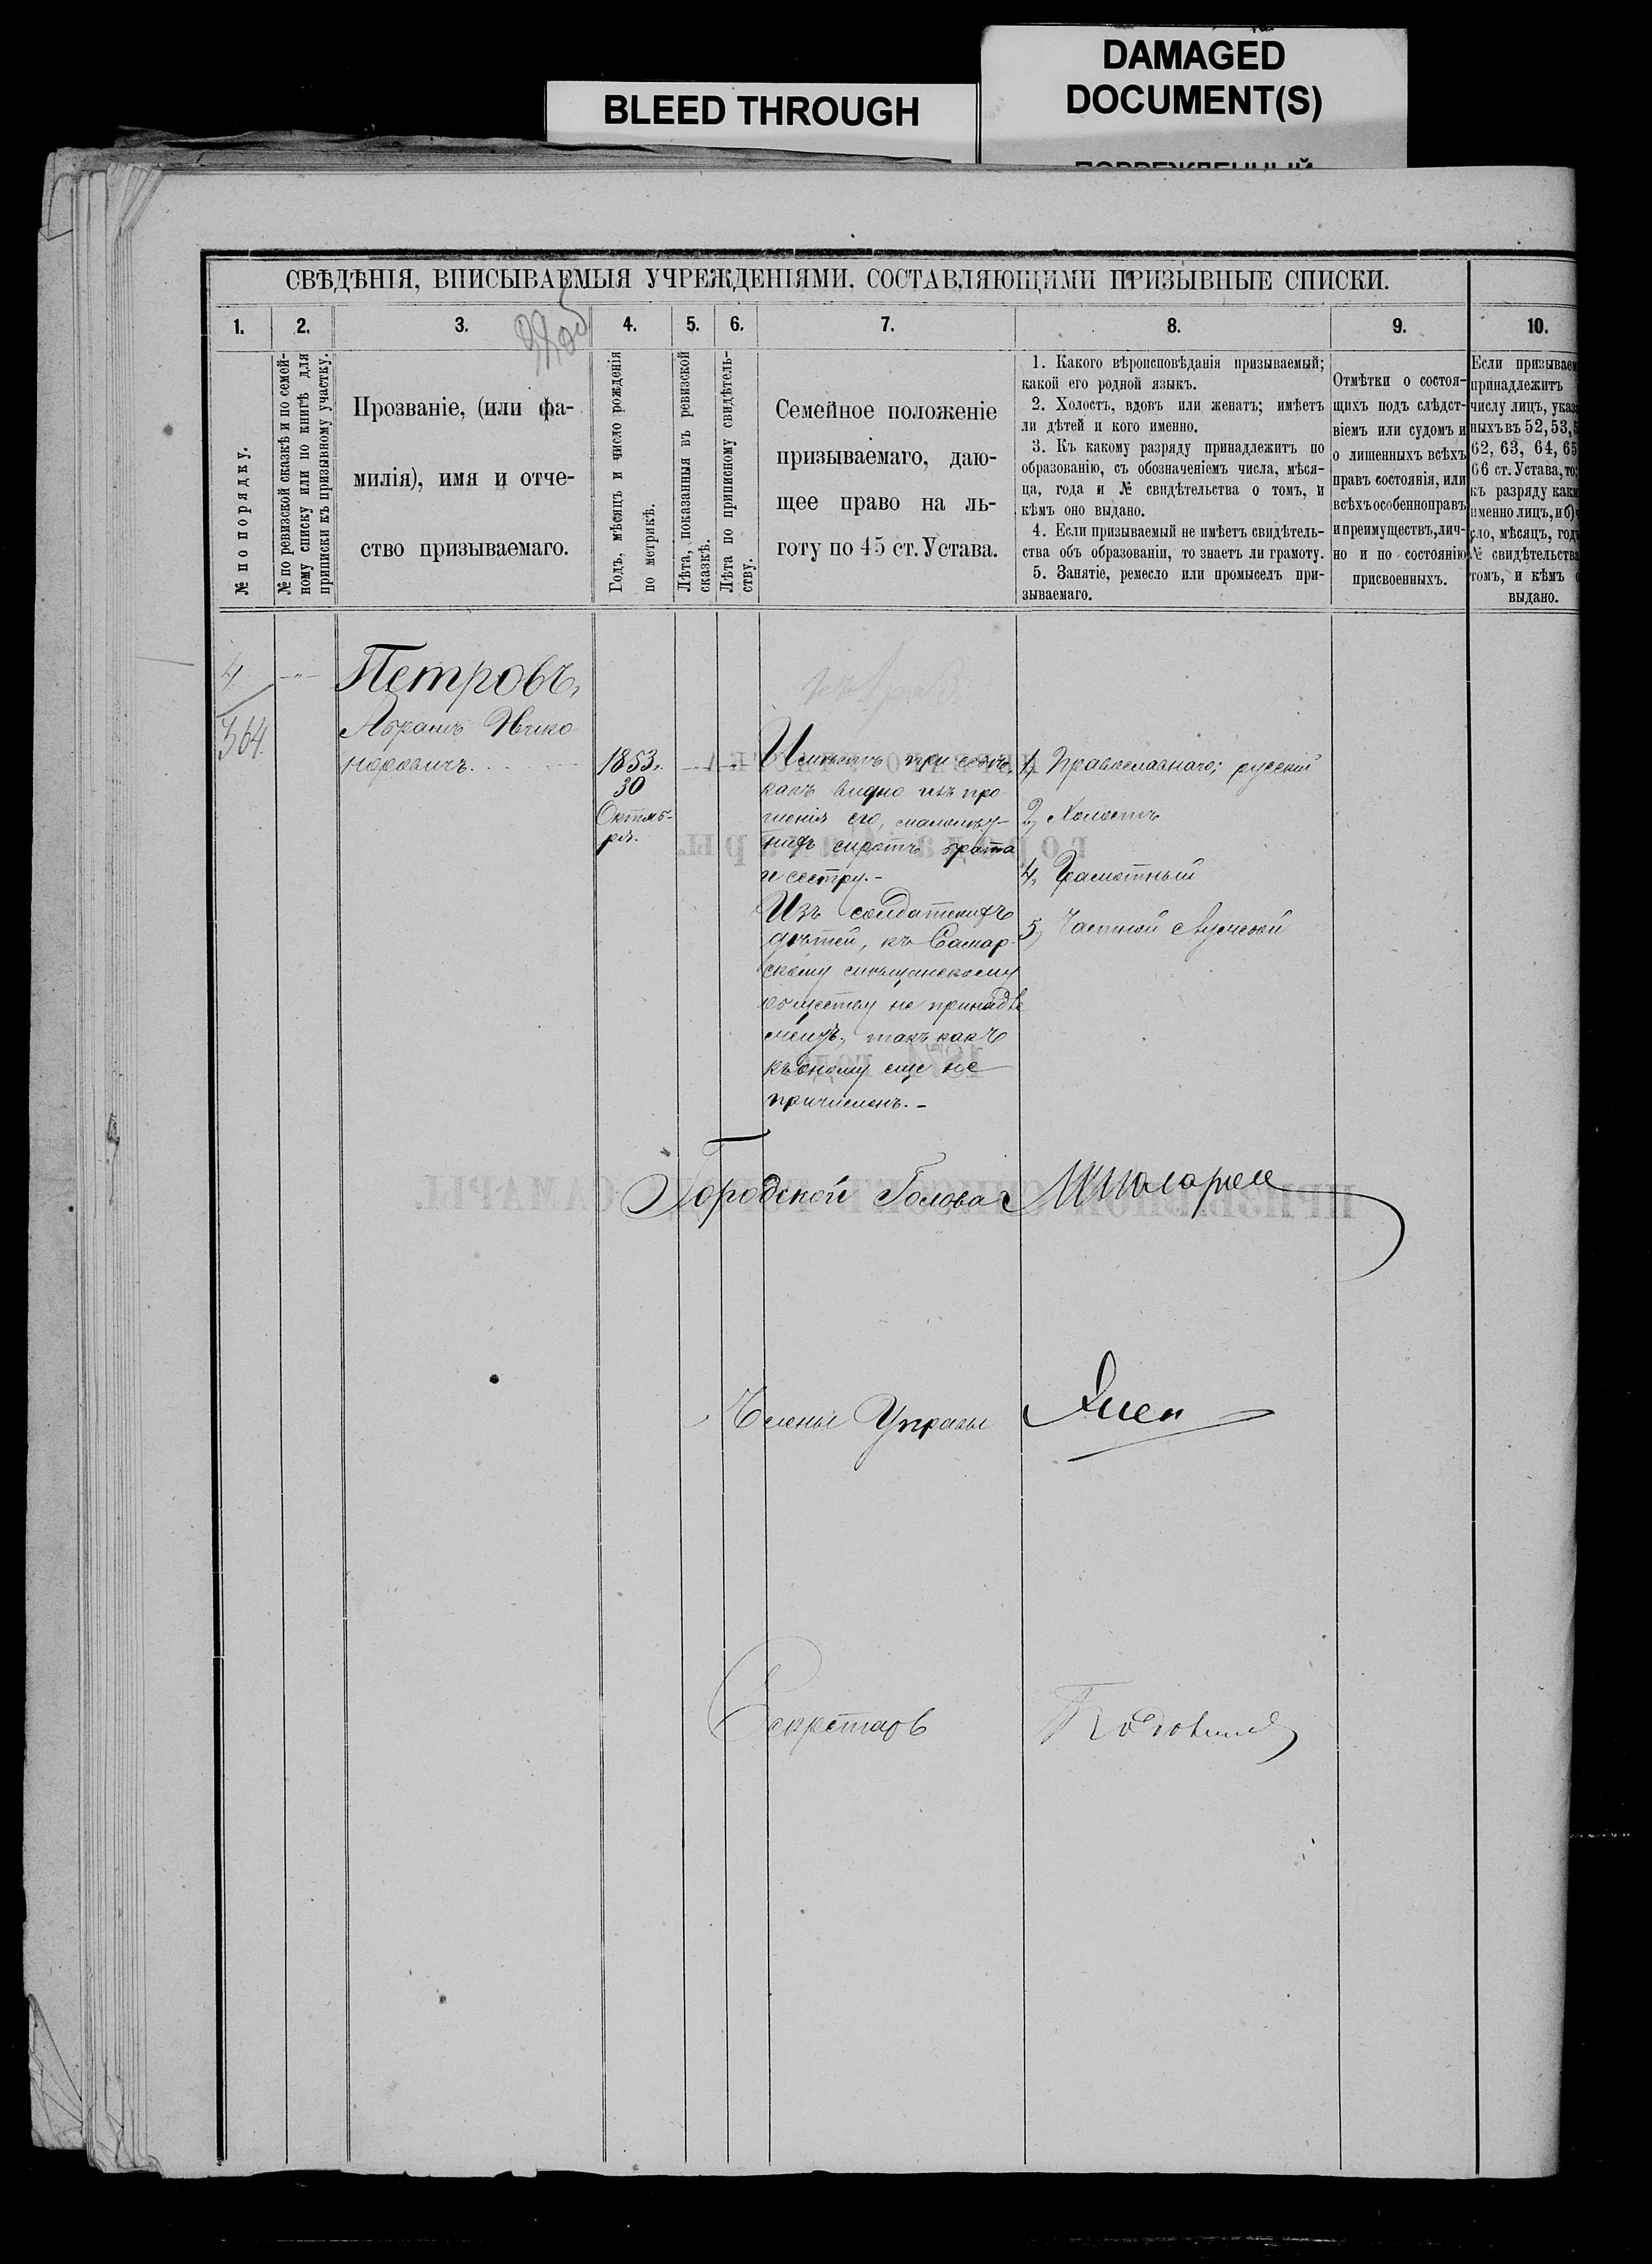 BLEED THROUGH
DAMAGED
DOCUMENT(S)
СВѢДѢНІЯ, ВПИСЫВАЕМЫЯ УЧРЕЖДЕНІЯМИ, СОСТАВЛЯЮЩИМИ ПРИЗЫВНЫЕ СПИСКИ.
1.
2.
3.
4.
5.
6.
7.
8.
9.
10.
№ по порядку.
№ по ревизской сказкѣ и по семей-
ному списку или по книгѣ для
приписки къ призывному участку.
Прозваніе, (или фа-
милія), имя и отче-
ство призываемаго.
Годъ, мѣсяцъ и число рожденія
по метрикѣ.
Лѣта, показанныя въ ревизской
сказкѣ.
Лѣта по приписному свидѣтель-
ству.
Семейное положеніе
призываемаго, даю-
щее право на ль-
готу по 45 ст. Устава.
1. Какого вѣроисповѣданія призываемый;
какой его родной языкъ.
2. Холостъ, вдовъ или женатъ; имѣетъ
ли дѣтей и кого именно.
3. Къ какому разряду принадлежитъ по
образованію, съ обозначеніемъ числа, мѣся-
ца, года и № свидѣтельства о томъ, и
кѣмъ оно выдано.
4. Если призываемый не имѣетъ свидѣтель-
ства объ образованіи, то знаетъ ли грамоту.
5. Занятіе, ремесло или промыселъ при-
зываемаго.
Отмѣтки о состоя-
щихъ подъ слѣдст-
віемъ или судомъ и
о лишенныхъ всѣхъ
правъ состоянія, или
всѣхъ особенно правъ
и преимуществъ, лич-
но и по состоянію
присвоенныхъ.
Если призываем
принадлежитъ
числу лицъ, указ
ныхъ въ 52, 53, 5
62, 63, 64, 65
66 ст. Устава, то:
къ разряду каки
именно лицъ, и б) ч
сло, мѣсяцъ, годъ
№ свидѣтельства
томъ, и кѣмъ о
выдано.
4
364.
Петровъ,
Абрамъ Нико-
норовичъ.
1853.
30
Октяб-
ря.
Имѣетъ при себѣ,
какъ видно изъ про
шенія его,
сиротъ брата
и сестру.-
Изъ солдатскихъ
дѣтей, къ Самар-
скому мѣщанскому
обществу не принадле
житъ, такъ какъ
къ оному еще не
причисленъ.-
1) Православнаго; русскій
2) Холостъ
4) Грамотный
5)
Городской Голова
Члены Управы
Секретарь